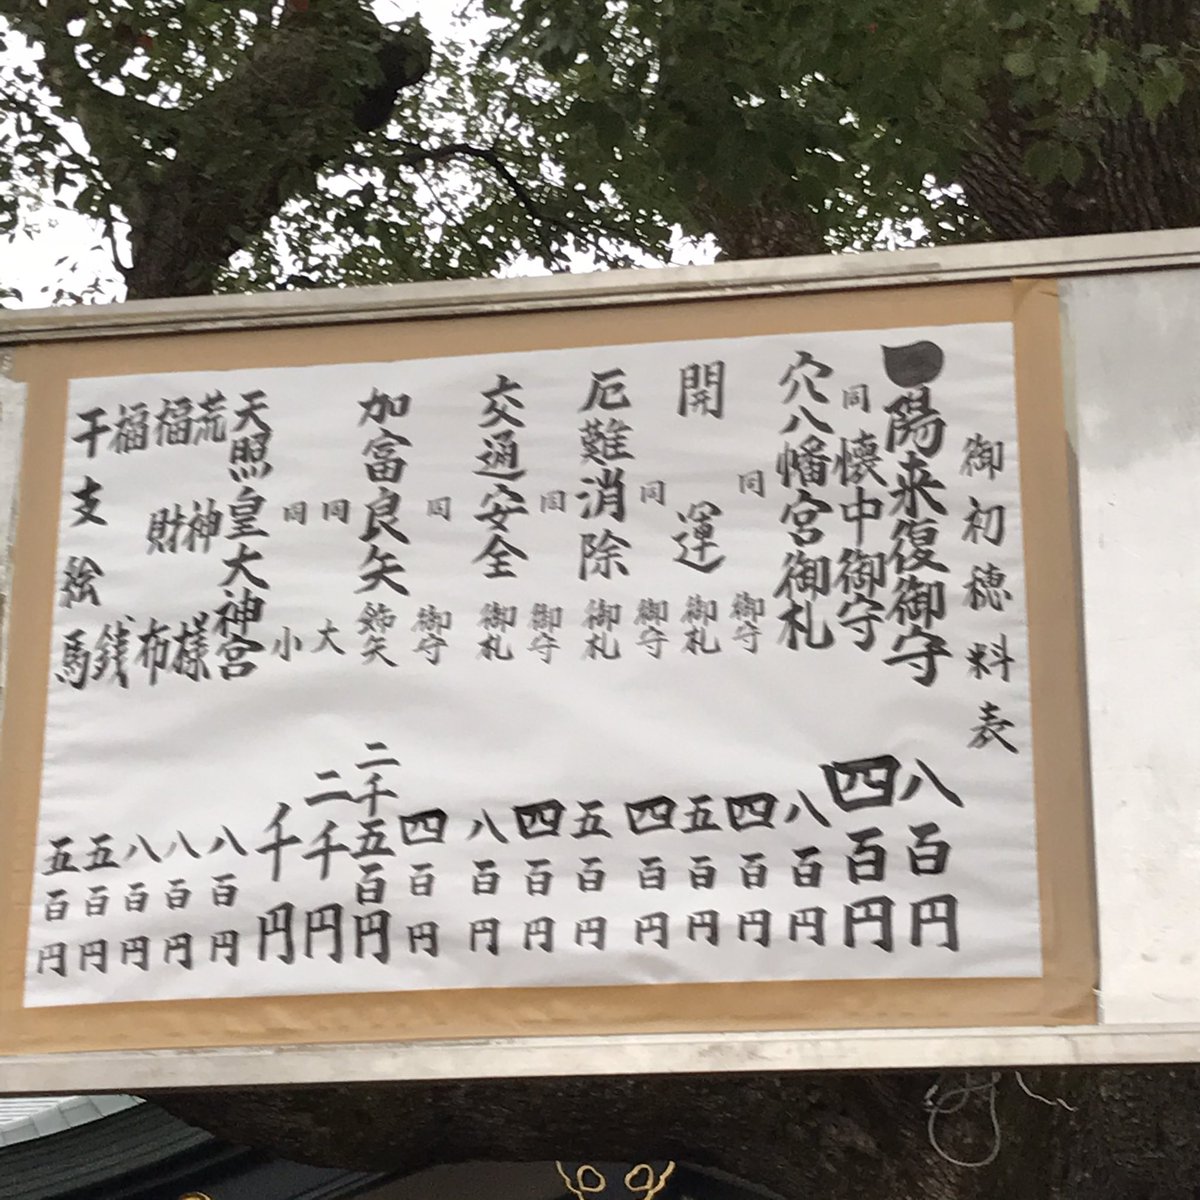 御初穂料表
一陽来復御守 八百円
同 懐中御守 四百円
穴八幡宮御札 八百円
同 御守 四百円
開運 御札 五百円
同 御守 四百円
厄難消除 御札 五百円
同 御守 四百円
交通安全 御札 八百円
同 御守 四百円
加富良矢 飾矢 二千五百円
同 大 二千円
同 小 千円
天照皇大神宮 八百円
荒神様 八百円
福財布 八百円
福銭 五百円
干支絵馬 五百円